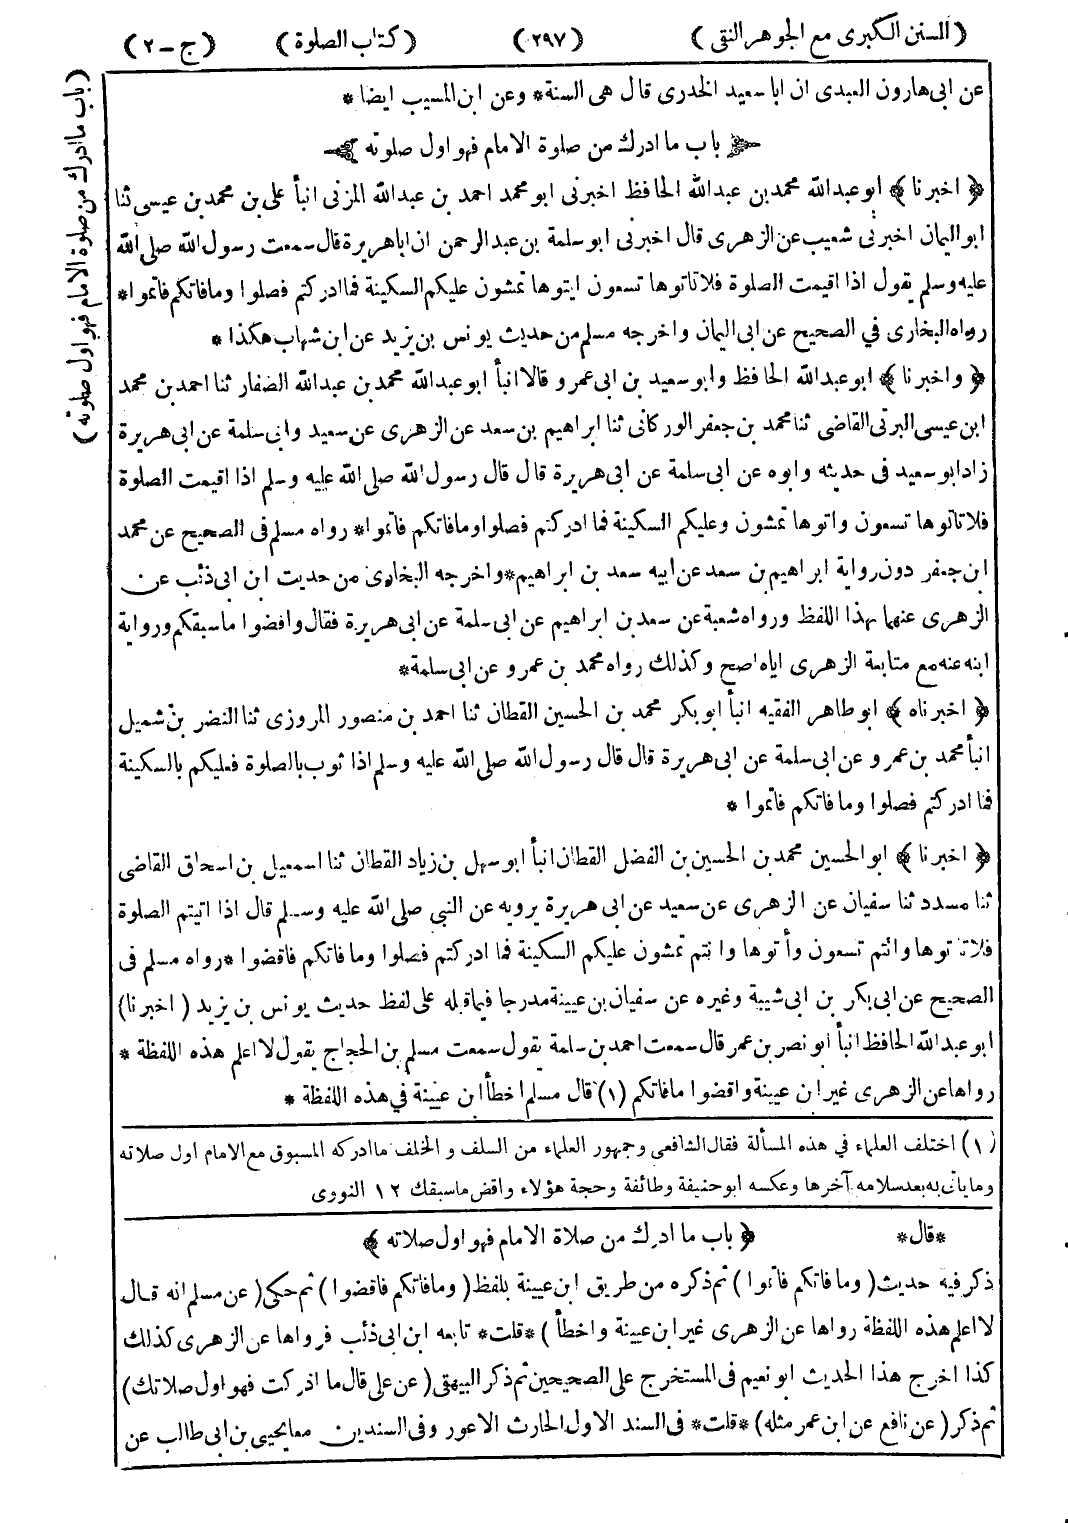 (السنن الكبرى مع الجوهر النقى) (٢٩٧) (كتاب الصلوة) (ج-٢)
(باب ما ادرك من صلوة الامام فهو اول صلوته)
عن ابى هارون العبدى ان ابا سعيد الخدرى قال هى السنة* وعن ابن المسيب ايضا*
باب ما ادرك من صلوة الامام فهو اول صلوته
﴿اخبرنا﴾ ابو عبدالله محمد بن عبدالله الحافظ اخبرنى ابو محمد احمد بن عبدالله المزنى انبأ على بن محمد بن عيسى ثنا
ابو اليمان اخبرنى شعيب عن الزهرى قال اخبرنى ابو سلمة بن عبد الرحمن ان ابا هريرة قال سمعت رسول الله صلى الله
عليه وسلم يقول اذا اقيمت الصلوة فلا تاتوها تسعون ايتوها تمشون عليكم السكينة فما ادركتم فصلوا وما فاتكم فاتموا*
رواه البخارى في الصحيح عن ابى اليمان واخرجه مسلم من حديث يونس بن يزيد عن ابن شهاب هكذا*
﴿واخبرنا﴾ ابو عبدالله الحافظ وابو سعيد بن ابى عمرو قالا انبأ ابو عبدالله محمد بن عبدالله الصفار ثنا احمد بن محمد
ابن عيسى البرتى القاضى ثنا محمد بن جعفر الوركانى ثنا ابراهيم بن سعد عن الزهرى عن سعيد وابى سلمة عن ابى هريرة
زاد ابو سعيد فى حديثه وابوه عن ابى سلمة عن ابى هريرة قال قال رسول الله صلى الله عليه وسلم اذا اقيمت الصلوة
فلا تاتوها تسعون واتوها تمشون وعليكم السكينة فما ادركتم فصلوا وما فاتكم فاتموا* رواه مسلم فى الصحيح عن محمد
ابن جعفر دون رواية ابراهيم بن سعد عن ابيه سعد بن ابراهيم* واخرجه البخارى من حديث ابن ابى ذئب عن
الزهرى عنهما بهذا اللفظ ورواه شعبة عن سعد بن ابراهيم عن ابى سلمة عن ابى هريرة فقال وافضوا ما سبقكم ورواية
ابنه عنه مع متابعة الزهرى اياه اصح وكذلك رواه محمد بن عمرو عن ابى سلمة*
﴿اخبرناه﴾ ابو طاهر الفقيه انبأ ابو بكر محمد بن الحسين القطان ثنا احمد بن منصور المروزى ثنا النضر بن شميل
انبأ محمد بن عمرو عن ابى سلمة عن ابى هريرة قال قال رسول الله صلى الله عليه وسلم اذا ثوب بالصلوة فعليكم بالسكينة
فما ادركتم فصلوا وما فاتكم فاتموا*
﴿اخبرنا﴾ ابو الحسين محمد بن الحسين بن الفضل القطان انبأ ابو سهل بن زياد القطان ثنا اسمعيل بن اسحاق القاضى
ثنا مسدد ثنا سفيان عن الزهرى عن سعيد عن ابى هريرة يرويه عن النبي صلى الله عليه وسلم قال اذا اتيتم الصلوة
فلا تاتوها وانتم تسعون وأتوها وانتم تمشون عليكم السكينة فما ادركتم فصلوا وما فاتكم فاقضوا* رواه مسلم فى
الصحيح عن ابى بكر بن ابى شيبة وغيره عن سفيان بن عيينة مدرجا فيما قبله على لفظ حديث يونس بن يزيد (اخبرنا)
ابو عبدالله الحافظ انبأ ابو نصر بن عمر قال سمعت احمد بن سلمة يقول سمعت مسلم بن الحجاج يقول لا اعلم هذه اللفظة*
رواها عن الزهرى غير ابن عيينة واقضوا ما فاتكم (١) قال مسلم اخطأ ابن عيينة في هذه اللفظة*
(١) اختلف العلماء في هذه المسألة فقال الشافعى وجمهور العلماء من السلف و الخلف ما ادركه المسبوق مع الامام اول صلاته
وما يأتى له بعد سلامه آخرها وعكسه ابو حنيفة وطائفة وحجة هؤلاء واقض ما سبقك ١٢ النووى
*قال* ﴿باب ما ادرك من صلاة الامام فهو اول صلاته﴾
ذكر فيه حديث (وما فاتكم فاتموا) ثم ذكره من طريق ابن عيينة بلفظ (وما فاتكم فاقضوا) ثم حكى (عن مسلم انه قال
لا اعلم هذه اللفظة رواها عن الزهرى غير ابن عيينة واخطأ) *قلت* تابعه ابن ابى ذئب فرواها عن الزهرى كذلك
كذا اخرج هذا الحديث ابو نعيم فى المستخرج على الصحيحين ثم ذكر البيهقى (عن على قال ما ادركت فهو اول صلاتك)
ثم ذكر (عن نافع عن ابن عمر مثله) *قلت* فى السند الاول الحارث الاعور وفى السندين معا يحيى بن ابى طالب عن